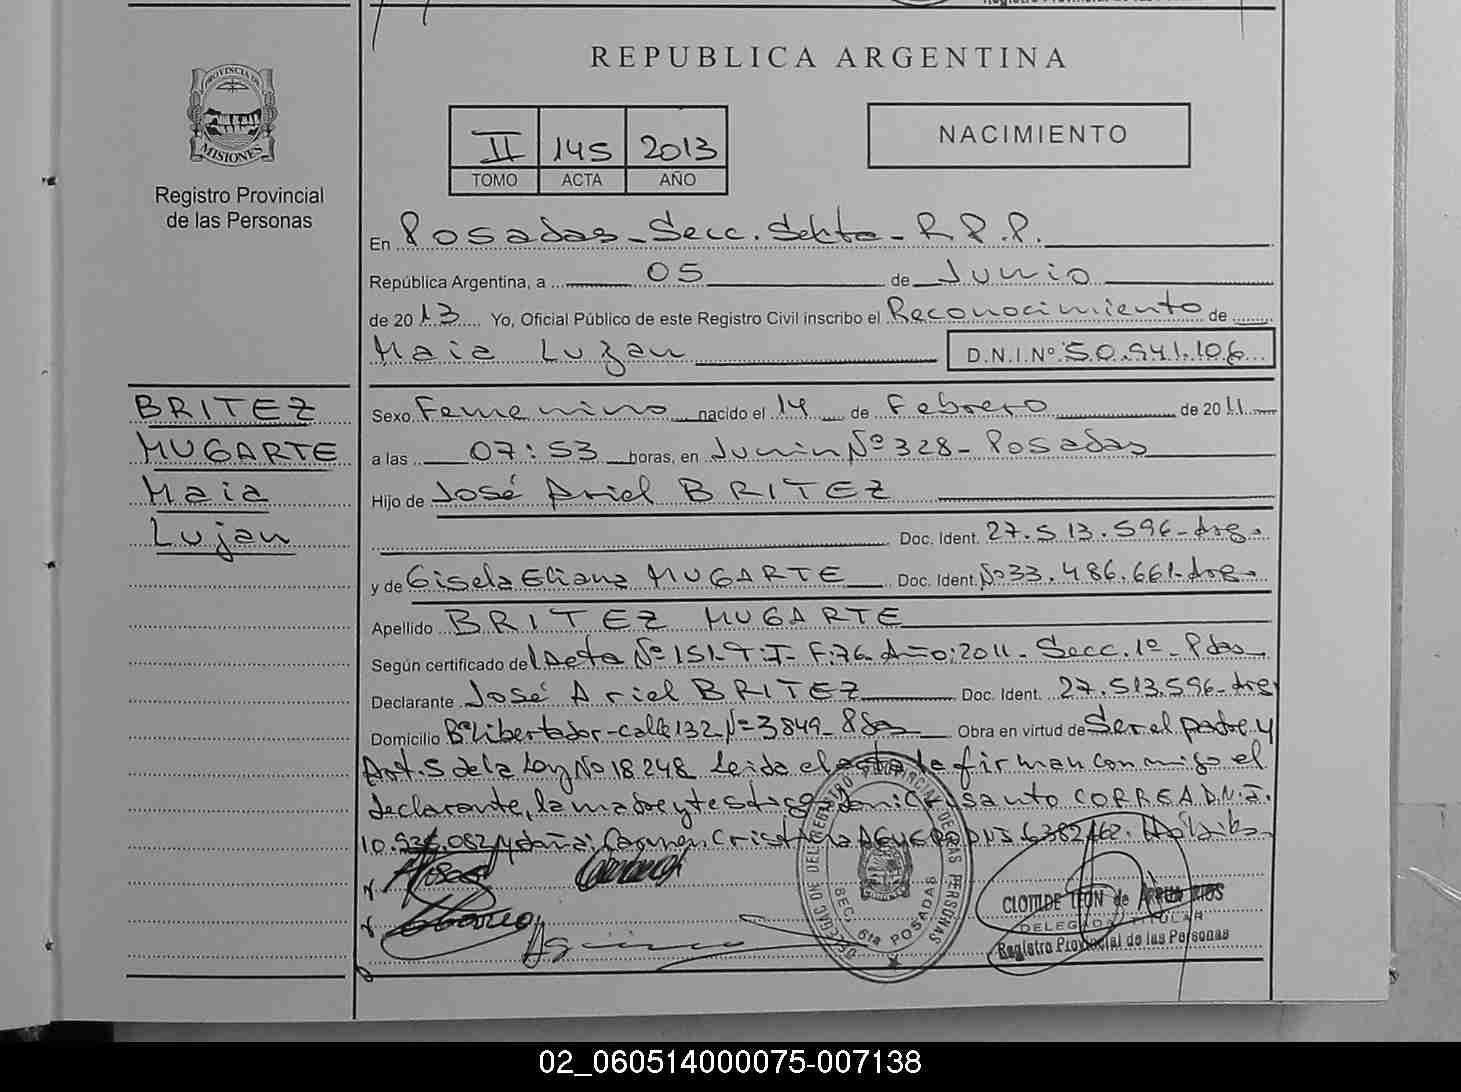 REPUBLICA ARGENTINA
PROVINCIA DE
MISIONES
Registro Provincial
de las Personas
II 145 2013
TOMO ACTA AÑO
NACIMIENTO
En Posadas - Secc. Sexta - R.P.P.
República Argentina, a 05 de Junio
de 2013 Yo, Oficial Público de este Registro Civil inscribo el Reconocimiento de
Maia Lujan D.N.I.Nº 50.941.106
BRITEZ
MUGARTE
Maia
Lujan
Sexo Femenino nacido el 14 de Febrero de 2011
a las 07:53 horas, en Junin Nº 328 - Posadas
Hijo de José Ariel BRITEZ
Doc. Ident. 27.513.596 - Arg.
y de Gisela Eliana MUGARTE Doc. Ident. Nº 33.486.661 - Arg.
Apellido BRITEZ MUGARTE
Según certificado de Acta Nº 151 - T: I - F: 76 - Año: 2011 - Secc. 1º - Pdas
Declarante José Ariel BRITEZ Doc. Ident. 27.513.596 - Arg
Domicilio Bº Libertador - calle 132 Nº 3849 - Pdas Obra en virtud de Ser el padre y
Art. 5 de la Ley Nº 18248 Leida el acta la firman conmigo el
declarante, la madre y testigo santo CORREA D.N.I.
10. .082 y doña: Carmen Cristina AGUERO DNI 6382162.
DELEGAC. DEL REGISTRO PROVINCIAL DE LAS PERSONAS
SEC. 6ta POSADAS
CLOTILDE LEON de
DELEGADA TITULAR
Registro Provincial de las Personas
02_060514000075-007138